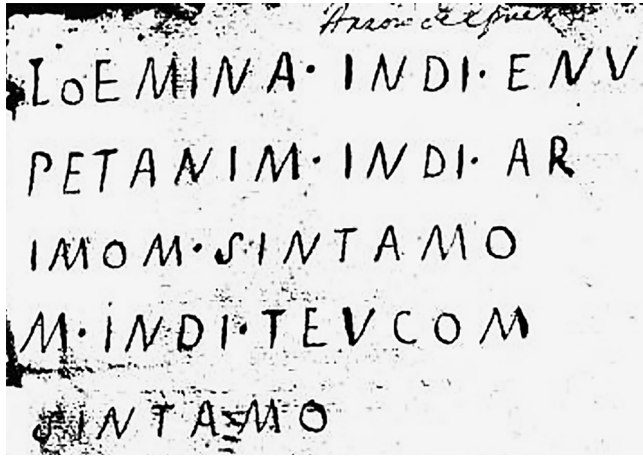 LOEMINA· INDI· ENV
PETANIM· INDI· AR
IMOM· SINTAMO
M· INDI· TEVCOM
SINTAMO